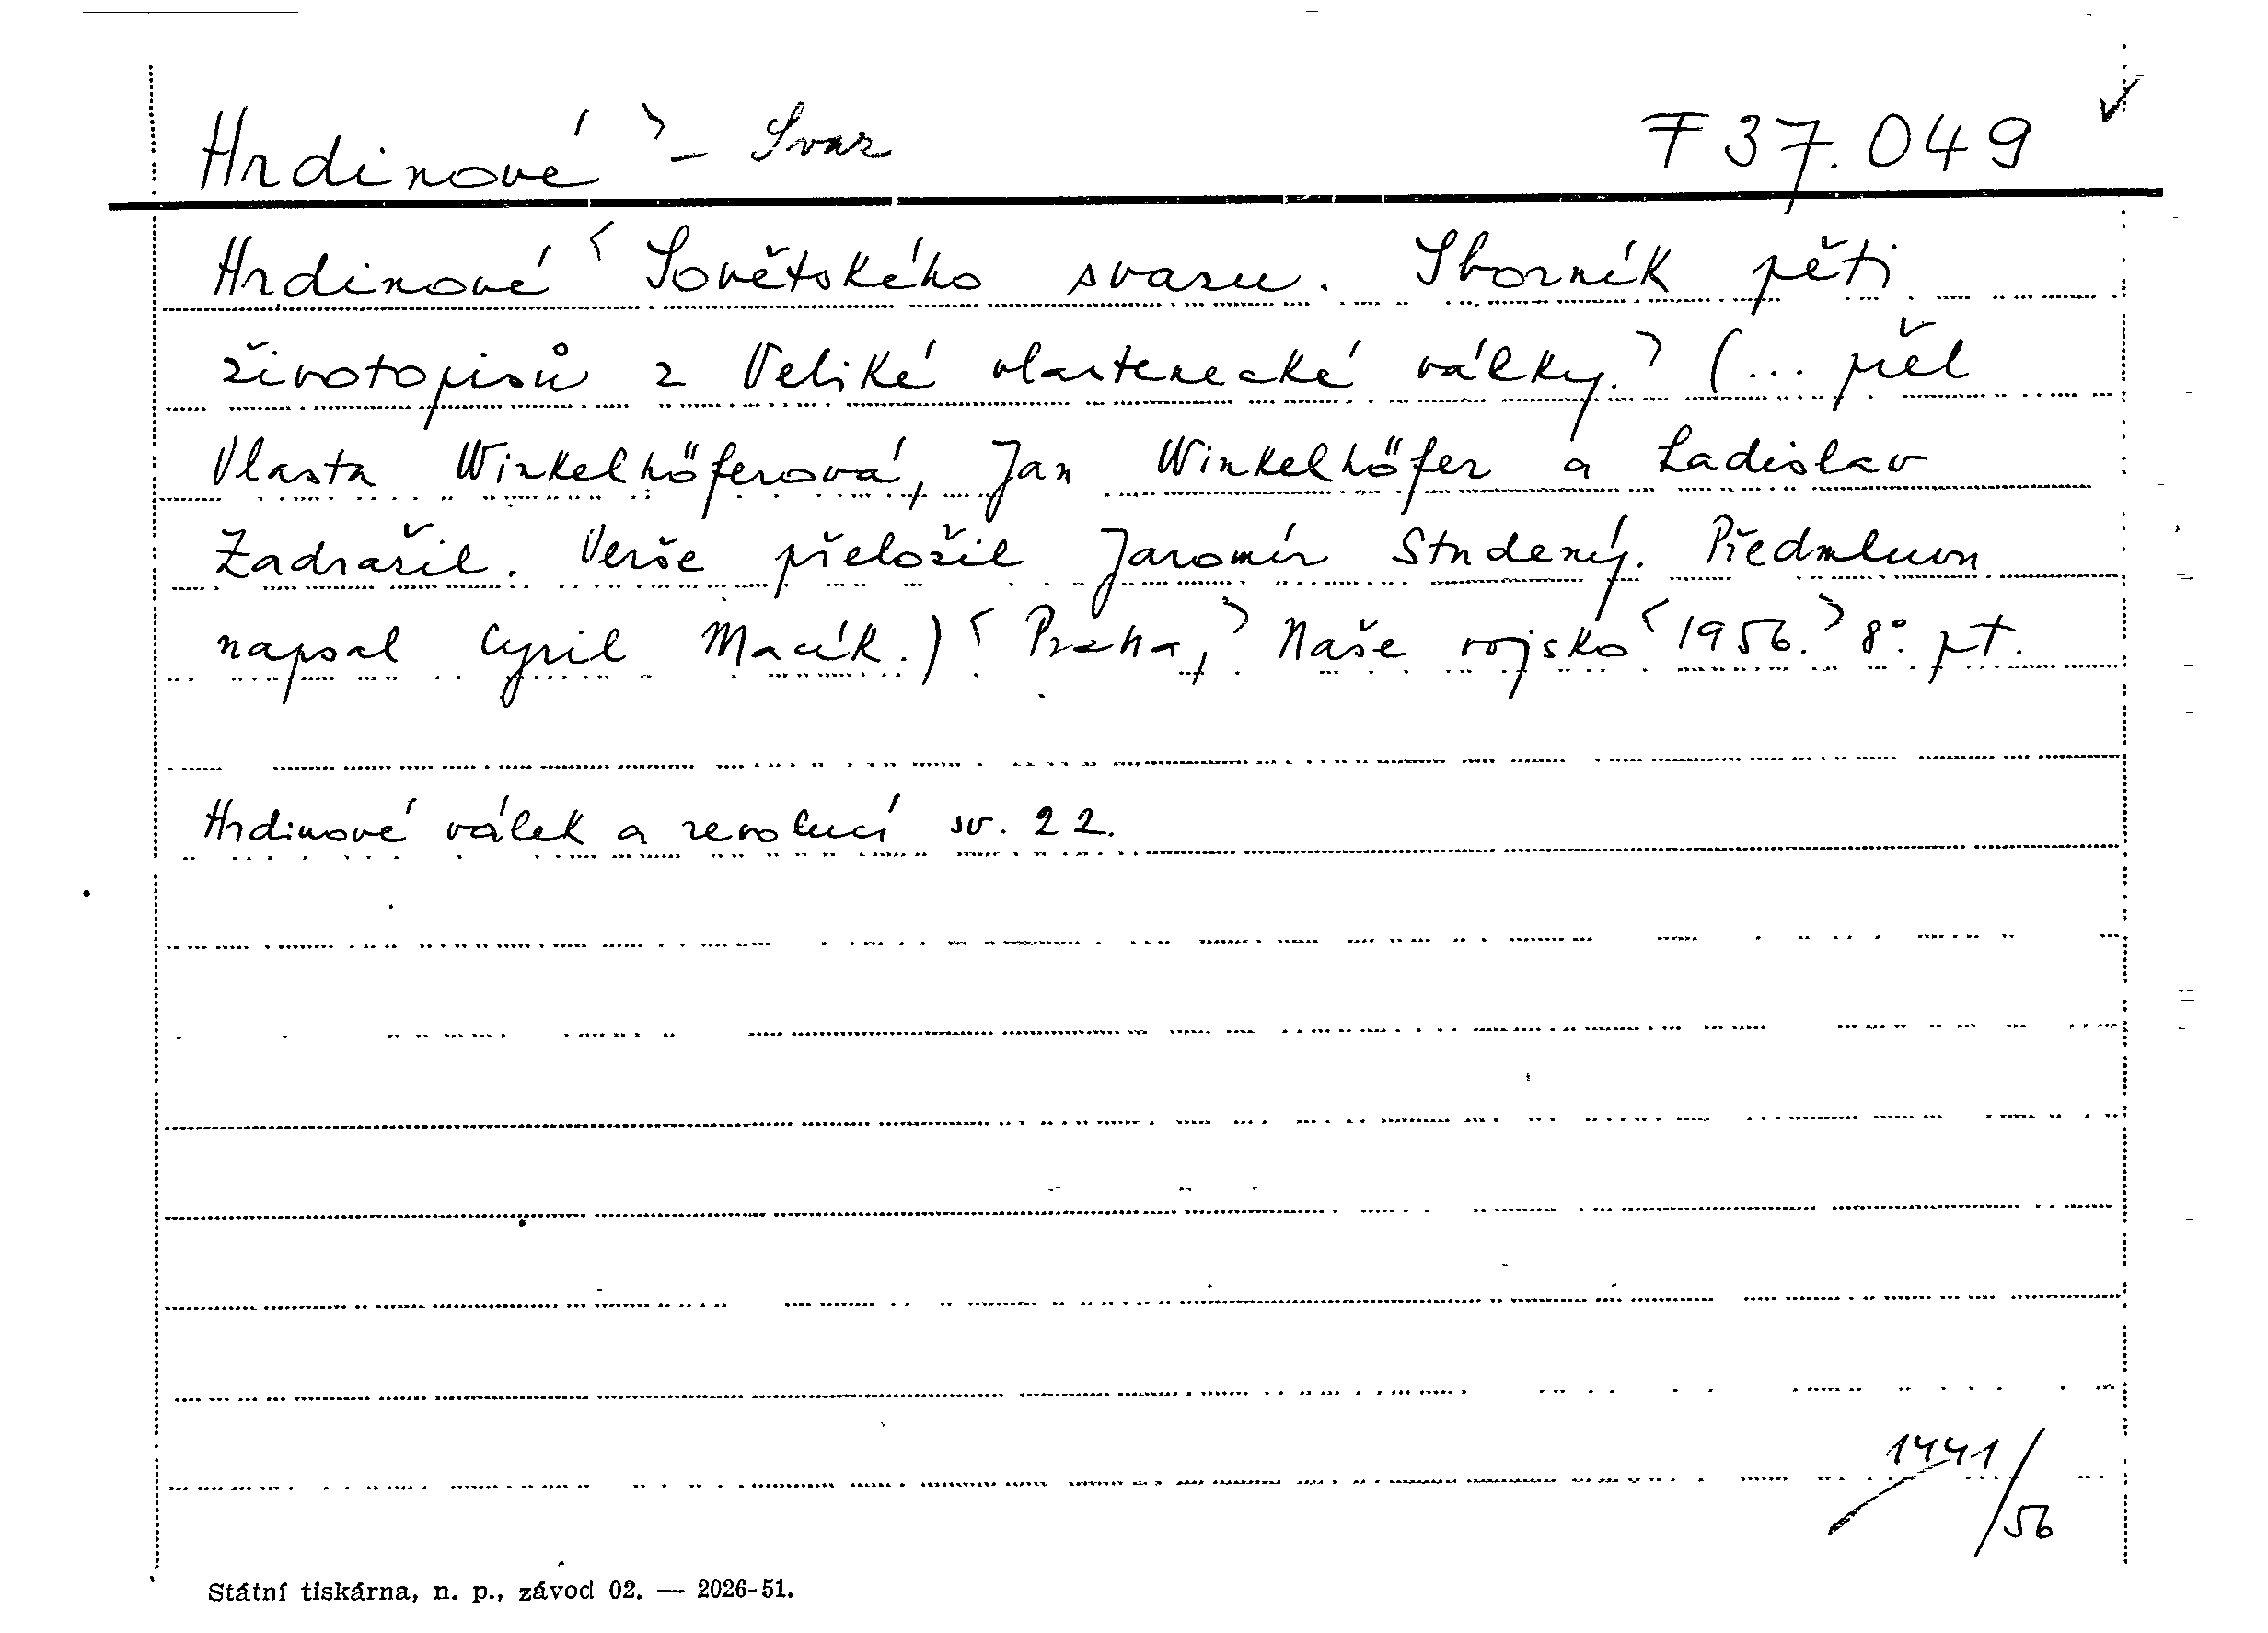 Hrdinové > - Svaz F 37.049 ✓
Hrdinové < Sovětského svazu. Sborník pěti
životopisů z Veliké vlastenecké války.> (... přel
Vlasta Winkelhöferová, Jan Winkelhöfer a Ladislav
Zadražil. Verše přeložil Jaromír Studený. Předmluvu
napsal Cyril Macík.) < Praha,> Naše vojsko < 1956.> 8° pt.
Hrdinové válek a revolucí sv. 22.
1441/56
Státní tiskárna, n. p., závod 02. — 2026-51.